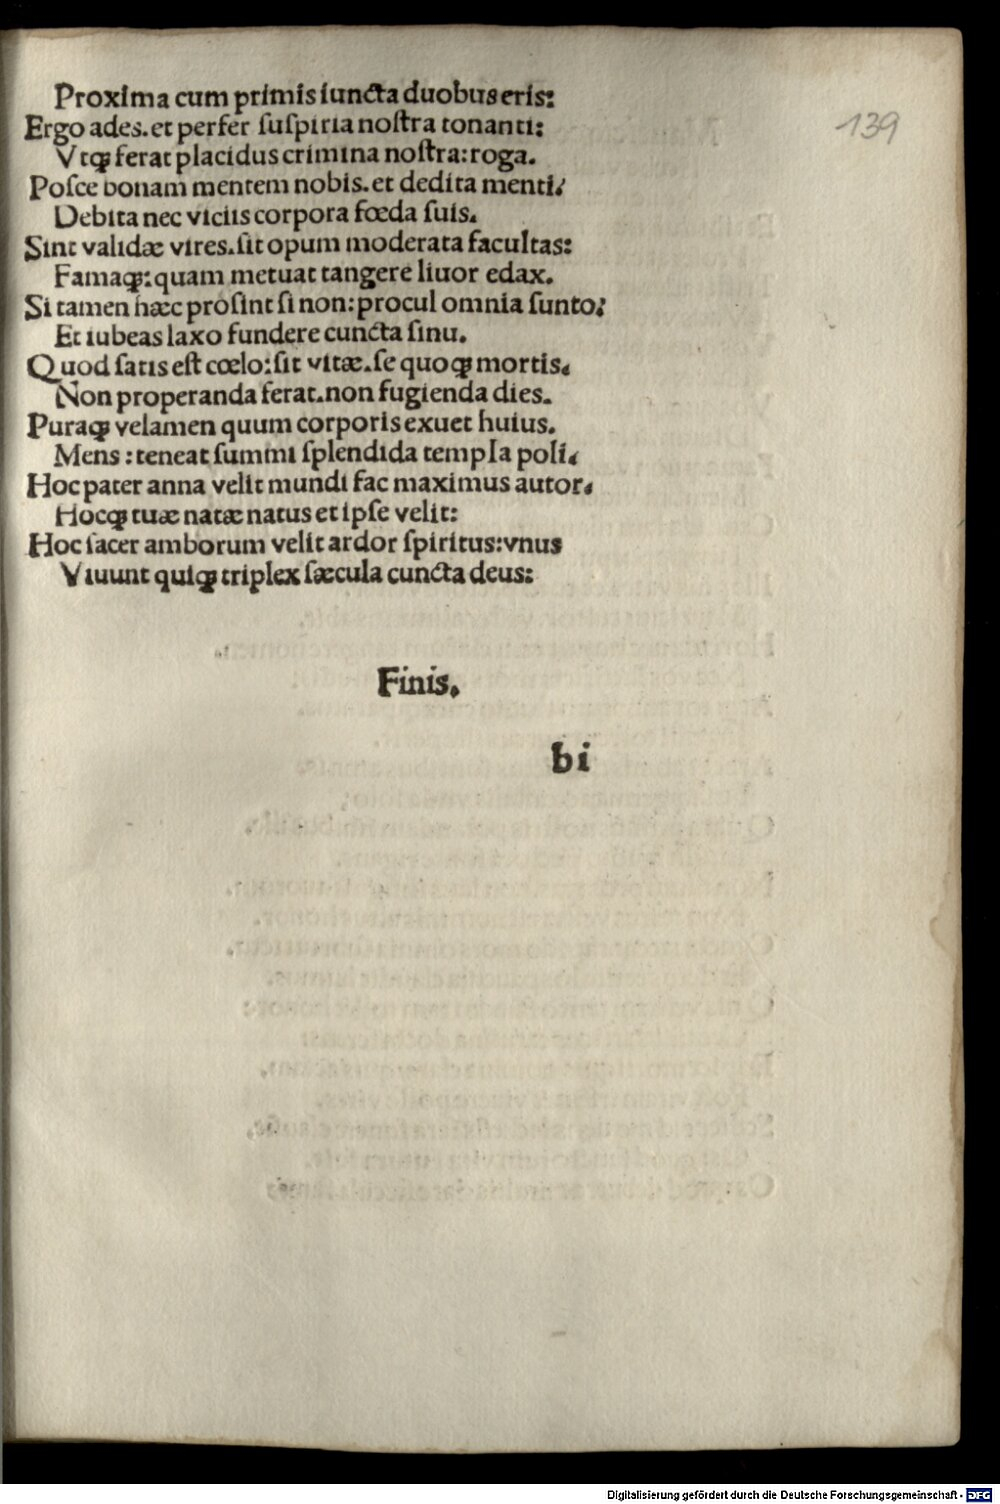 Proxima cum primis iuncta duobus eris:
Ergo ades. et perfer ſuſpiria noſtra tonanti:
Vtqꝫ ferat placidus crimina noſtra: roga.
Poſce bonam mentem nobis. et dedita menti/
Debita nec viciis corpora fœda ſuis.
Sint validæ vires. ſit opum moderata facultas:
Famaqꝫ: quam metuat tangere liuor edax.
Si tamen hæc proſint ſi non: procul omnia ſunto:
Et iubeas laxo fundere cuncta ſinu.
Quod ſatis eſt cœlo: ſit vitæ. ſe quoqꝫ mortis.
Non properanda ferat. non fugienda dies.
Puraqꝫ velamen quum corporis exuet huius.
Mens: teneat ſummi ſplendida templa poli.
Hoc pater anna velit mundi fac maximus autor.
Hocqꝫ tuæ natæ natus et ipſe velit:
Hoc ſacer amborum velit ardor ſpiritus: vnus
Viuunt quiqꝫ triplex ſæcula cuncta deus:
Finis.
bi
139
Digitalisierung gefördert durch die Deutsche Forschungsgemeinschaft - DFG